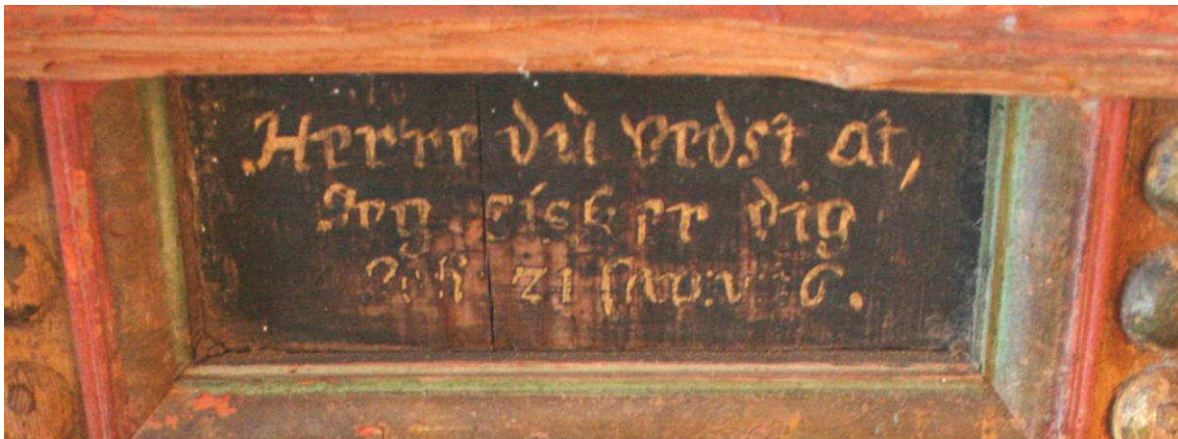 Herre dù vedst at,
Jeg elsker dig
Joh 21